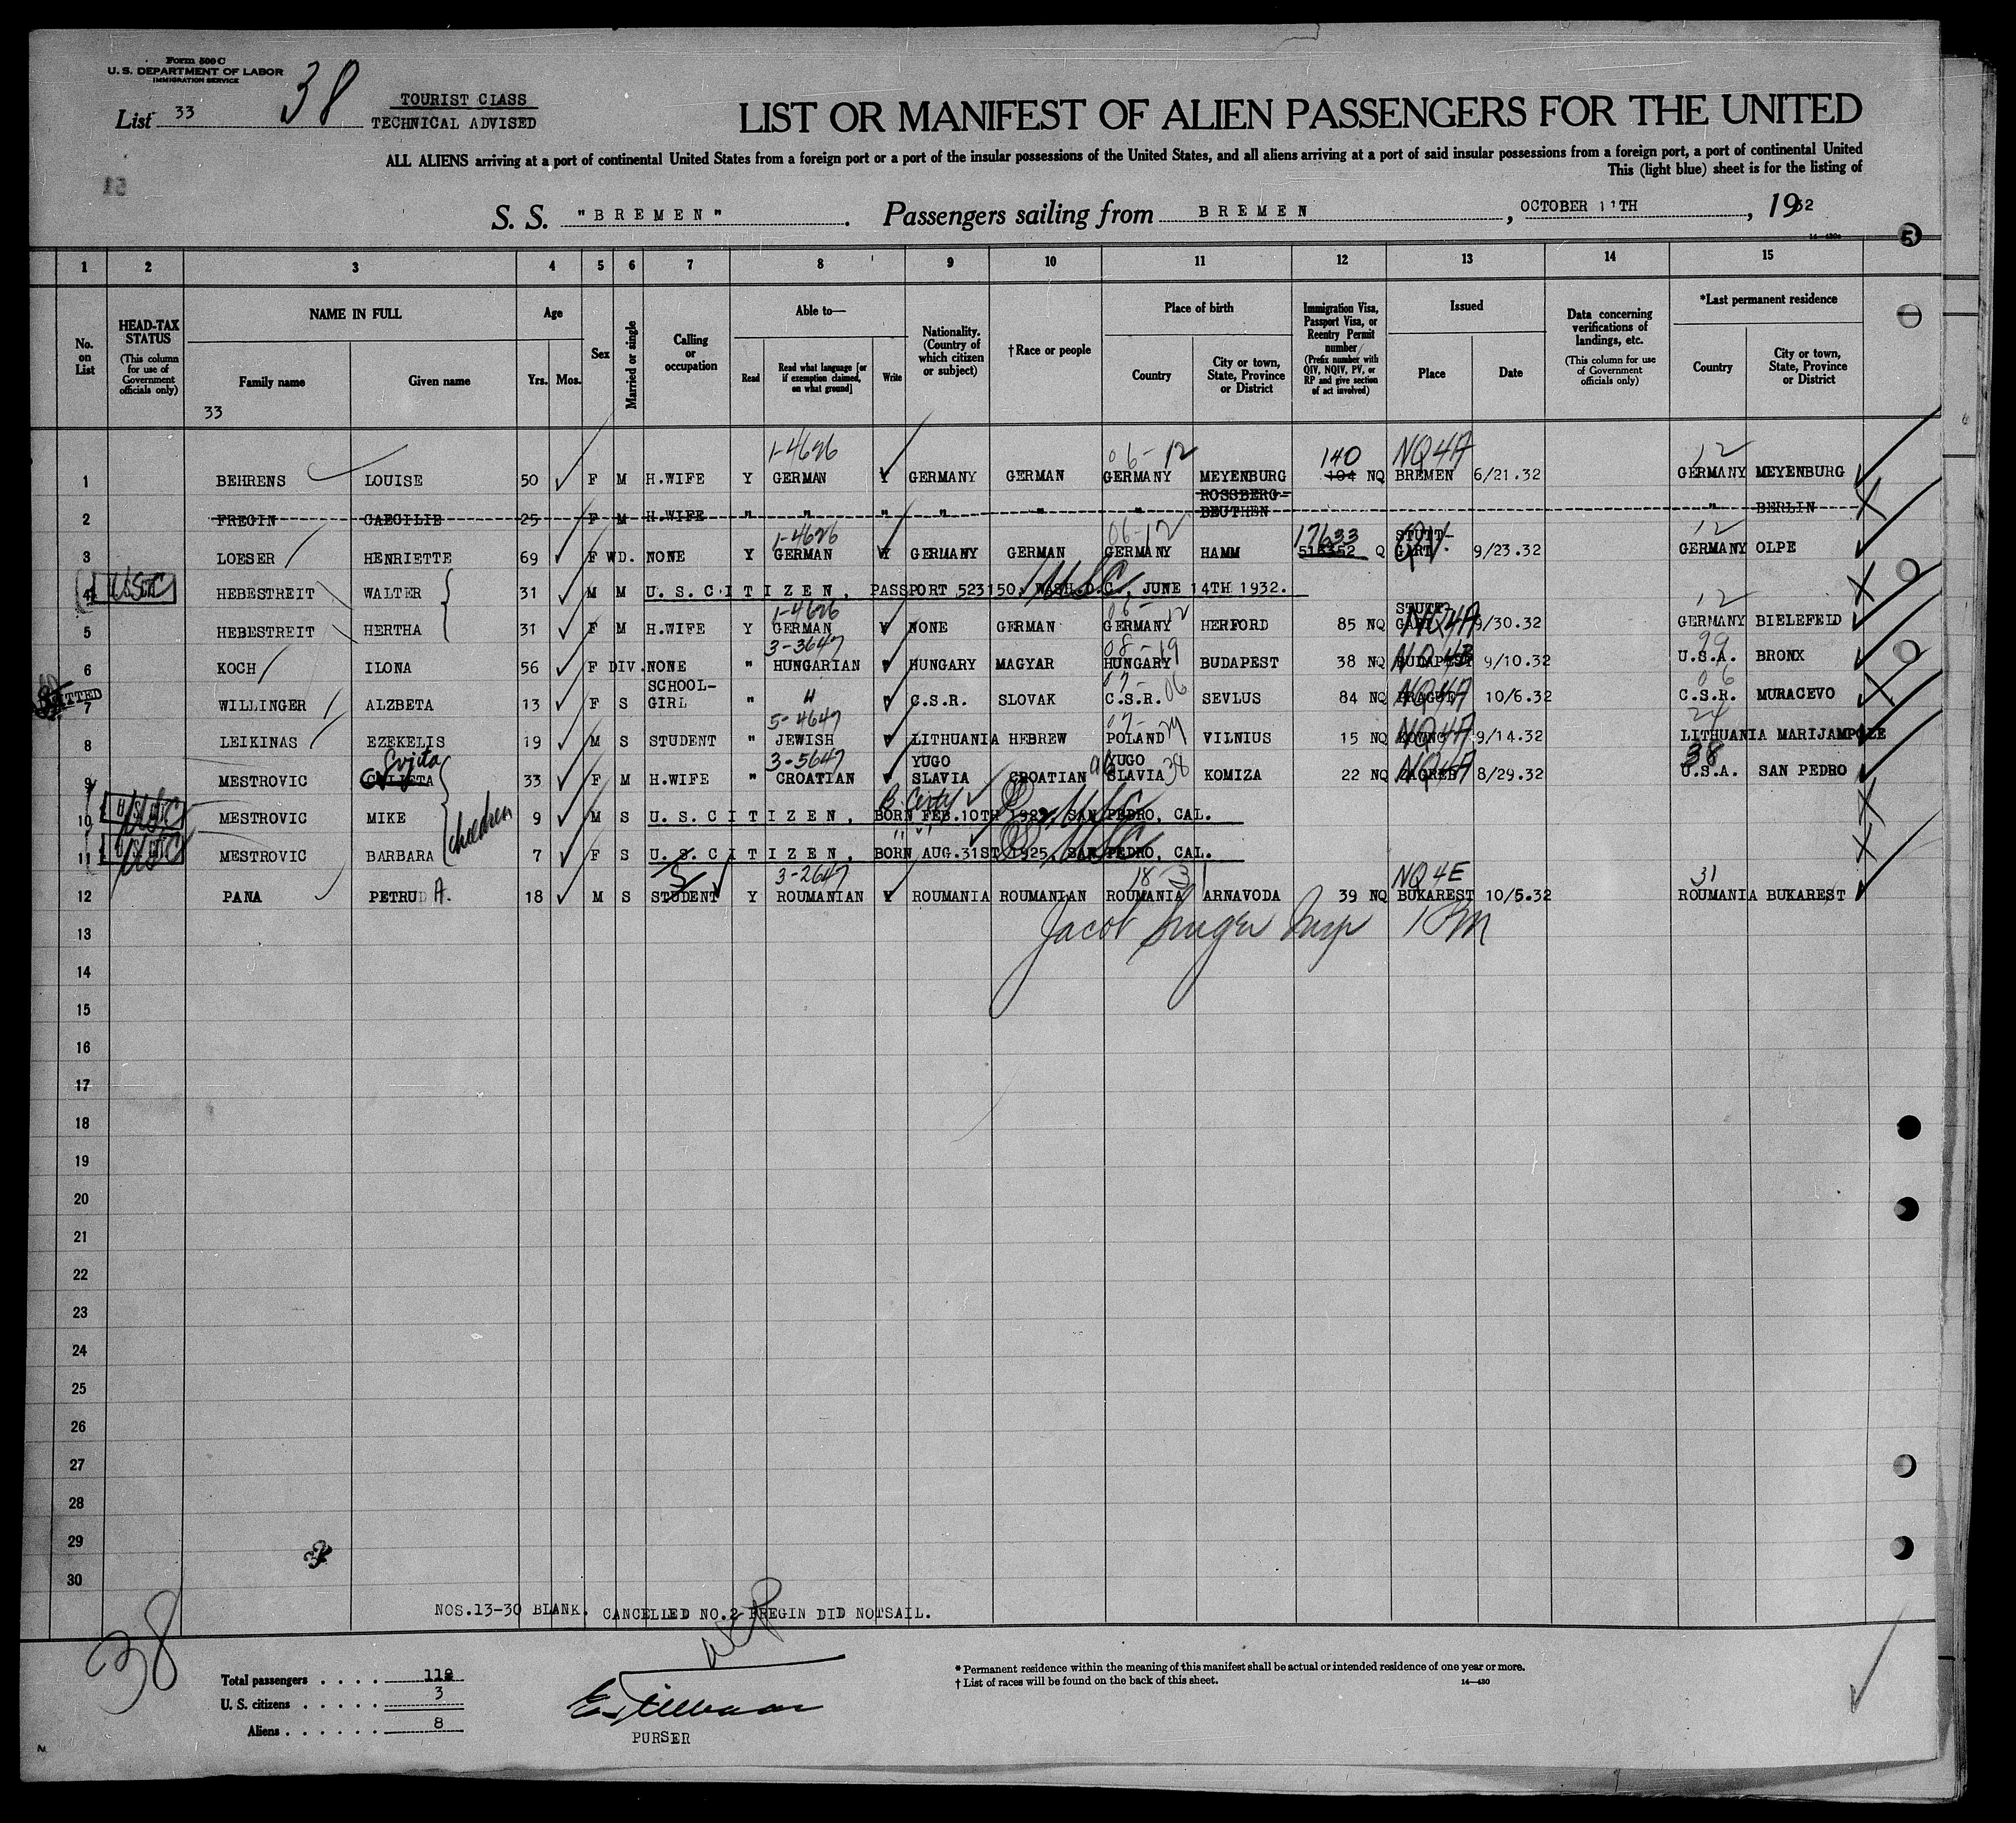 Form 500 C
U. S. DEPARTMENT OF LABOR
IMMIGRATION SERVICE
List 33 38
TOURIST CLASS
TECHNICAL ADVISED
LIST OR MANIFEST OF ALIEN PASSENGERS FOR THE UNITED
ALL ALIENS arriving at a port of continental United States from a foreign port or a port of the insular possessions of the United States, and all aliens arriving at a port of said insular possessions from a foreign port, a port of continental United
This (light blue) sheet is for the listing of
S. S. "BREMEN". Passengers sailing from BREMEN, OCTOBER 11TH, 1932
5
1 2 3 4 5 6 7 8 9 10 11 12 13 14 15
No. on List
HEAD-TAX STATUS (This column for use of Government officials only)
NAME IN FULL Family name Given name
33
Age Yrs. Mos.
Sex
Married or single
Calling or occupation
Able to— Read Read what language [or if exemption claimed, on what ground] Write
Nationality. (Country of which citizen or subject)
†Race or people
Place of birth Country City or town, State, Province or District
Immigration Visa, Passport Visa, or Reentry Permit number (Prefix number with QIV, NQIV, PV, or RP and give section of act involved)
Issued Place Date
Data concerning verifications of landings, etc. (This column for use of Government officials only)
*Last permanent residence Country City or town, State, Province or District
1-4626 06-12 140 NQ4A 12
1 BEHRENS LOUISE 50 F M H.WIFE Y GERMAN Y GERMANY GERMAN GERMANY MEYENBURG 104 NQ BREMEN 6/21.32 GERMANY MEYENBURG
2 FREGIN CAECILIE 25 F M H.WIFE " " " " " " ROSSBERG-BEUTHEN " BERLIN
1-4626 06-12 17633 QIV 12
3 LOESER HENRIETTE 69 F WD. NONE Y GERMAN Y GERMANY GERMAN GERMANY HAMM 516352 Q STUTT-GART. 9/23.32 GERMANY OLPE
4 USC HEBESTREIT WALTER 31 M M U.S.CITIZEN, PASSPORT 523150, WASH.D.C., JUNE 14TH 1932. USC
1-4626 06-12 NQ4A 12
5 HEBESTREIT HERTHA 31 F M H.WIFE Y GERMAN Y NONE GERMAN GERMANY HERFORD 85 NQ STUTT-GART 9/30.32 GERMANY BIELEFELD
3-3647 08-19 NQ4B 99
6 KOCH ILONA 56 F DIV. NONE " HUNGARIAN " HUNGARY MAGYAR HUNGARY BUDAPEST 38 NQ BUDAPEST 9/10.32 U.S.A. BRONX
07-06 NQ4A 06
7 WILLINGER ALZBETA 13 F S SCHOOL-GIRL " " " C.S.R. SLOVAK C.S.R. SEVLUS 84 NQ PRAGUE 10/6.32 C.S.R. MURACEVO
5-4647 NQ4A 24
8 LEIKINAS EZEKELIS 19 M S STUDENT " JEWISH " LITHUANIA HEBREW POLAND VILNIUS 15 NQ KOVNO 9/14.32 LITHUANIA MARIJAMPOLE
3-5647 38 NQ4A 38
9 MESTROVIC CVIJETA 33 F M H.WIFE " CROATIAN " YUGO SLAVIA CROATIAN YUGO SLAVIA KOMIZA 22 NQ ZAGREB 8/29.32 U.S.A. SAN PEDRO
10 USC MESTROVIC MIKE 9 M S U.S.CITIZEN, BORN FEB.10TH 1923, SAN PEDRO, CAL. USC
children
11 USC MESTROVIC BARBARA 7 F S U.S.CITIZEN, BORN AUG.31ST 1925, SAN PEDRO, CAL. USC
3-2647 18-31 NQ4E 31
12 PANA PETRU A. 18 M S STUDENT Y ROUMANIAN Y ROUMANIA ROUMANIAN ROUMANIA ARNAVODA 39 NQ BUKAREST 10/5.32 ROUMANIA BUKAREST
13 Jacob Insp
14
15
16
17
18
19
20
21
22
23
24
25
26
27
28
29
30
NOS.13-30 BLANK. CANCELLED NO.2 FREGIN DID NOTSAIL.
38
Total passengers 11
U. S. citizens 3
Aliens 8
PURSER
* Permanent residence within the meaning of this manifest shall be actual or intended residence of one year or more.
† List of races will be found on the back of this sheet.
14—430